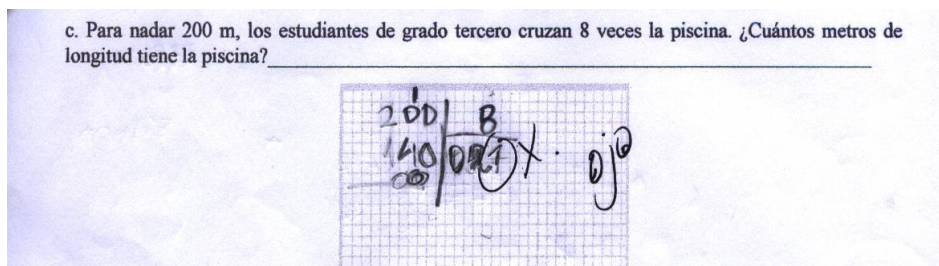 c. Para nadar 200 m, los estudiantes de grado tercero cruzan 8 veces la piscina. ¿Cuántos metros de
longitud tiene la piscina?
200 8
140 X. ojo
00